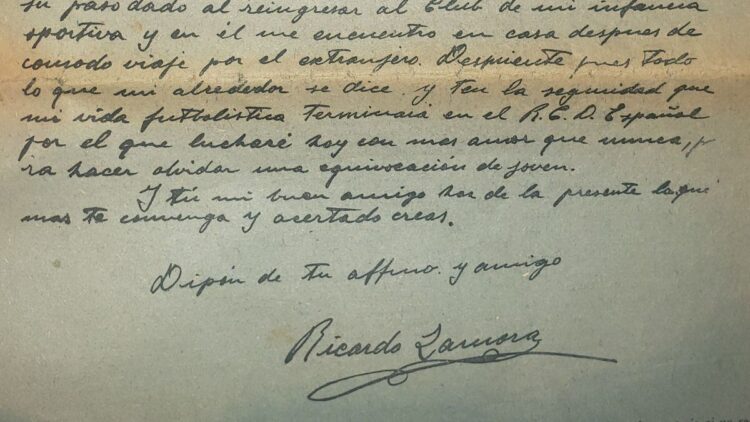 su paso dado al reingresar al Club de mi infancia
sportiva y en él me encuentro en casa despues de
comodo viaje por el extranjero. Desmiente pues todo
lo que mi alrededor se dice y ten la seguridad que
mi vida futbolistica terminará en el R.C.D. Español
por el que lucharé hoy con mas amor que nunca, p
ra hacer olvidar una equivocación de joven.
Y tú mi buen amigo haz de la presente lo que
mas te convenga y acertado creas.
Dipón de tu affmo. y amigo
Ricardo Zamora